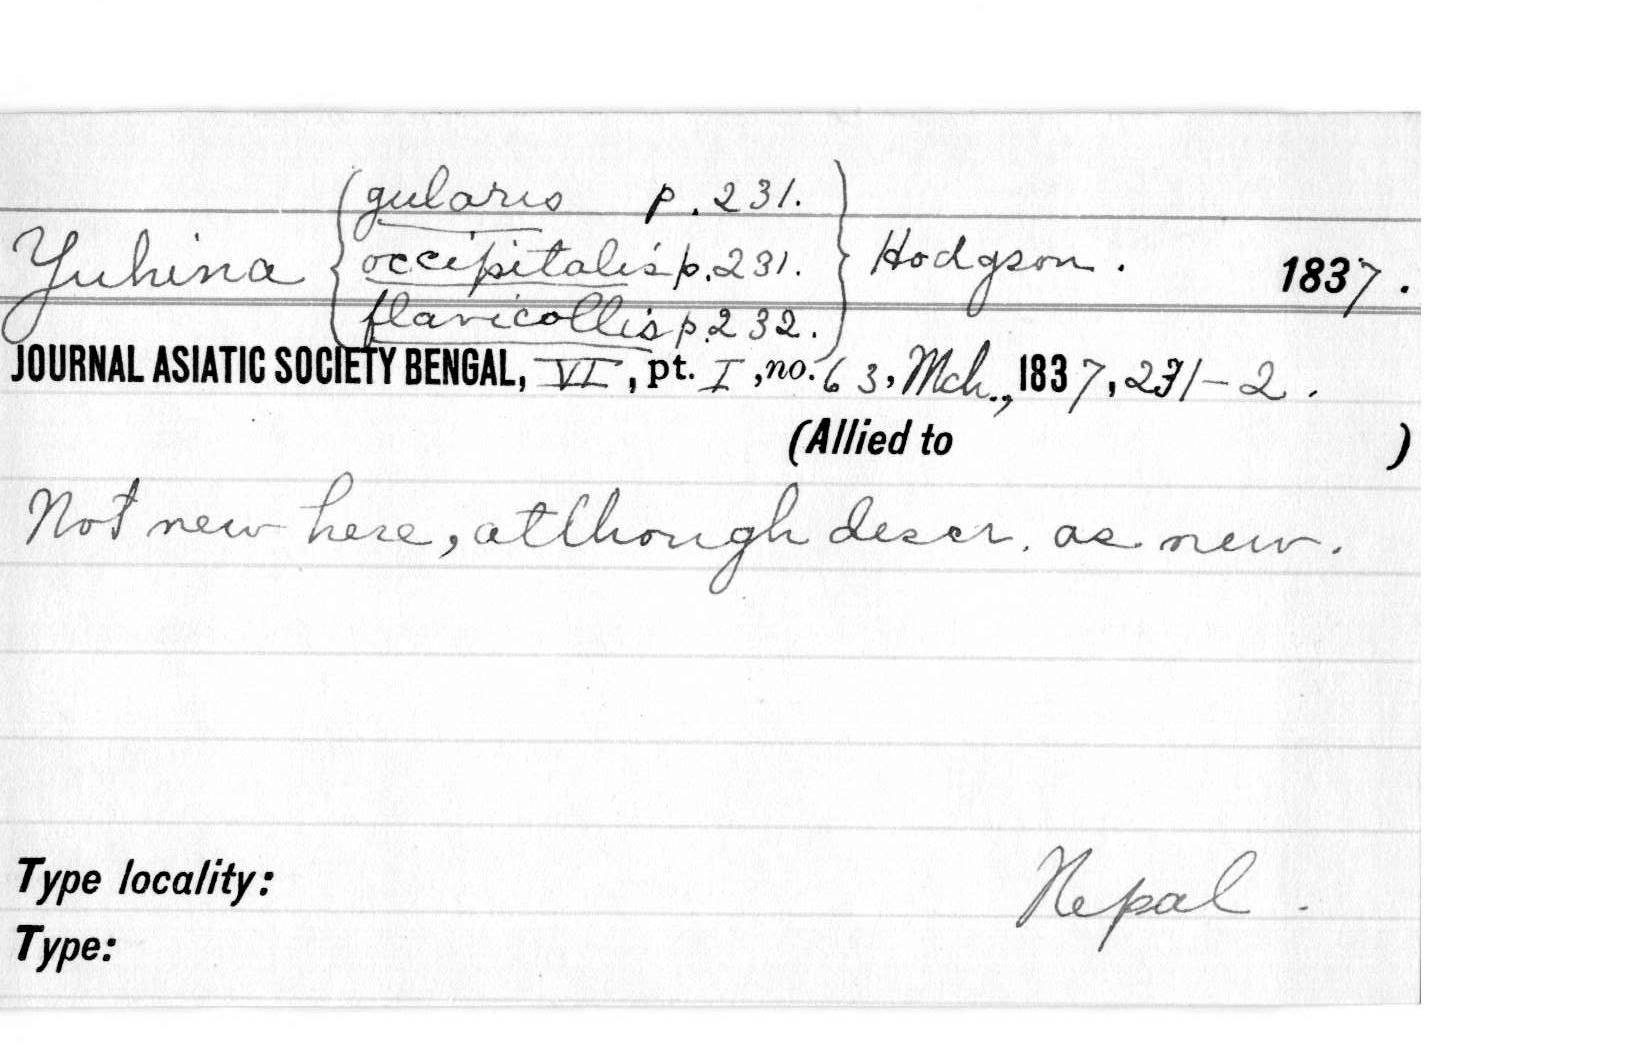 gularis p. 231.
Yuhina occipitalis p. 231. Hodgson. 1837.
flavicollis p. 232.
JOURNAL ASIATIC SOCIETY BENGAL, VI, pt. I, no. 63, Mch., 1837, 231-2.
(Allied to )
Not new here, atlhough descr. as new.
Type locality: Nepal.
Type: